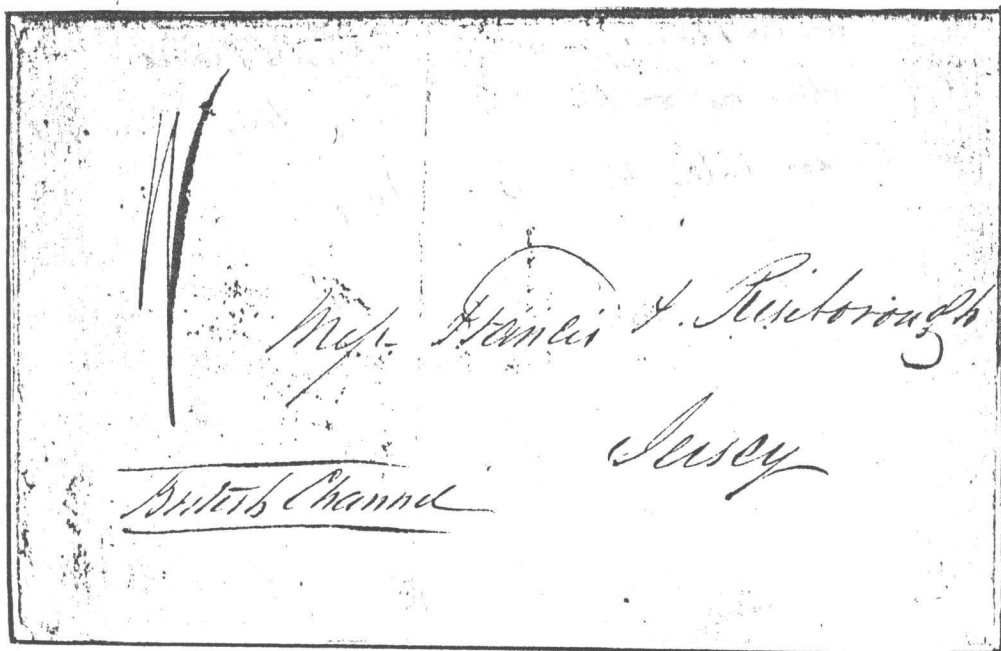 Messrs Francis & Riseborough
Jersey
British Channel